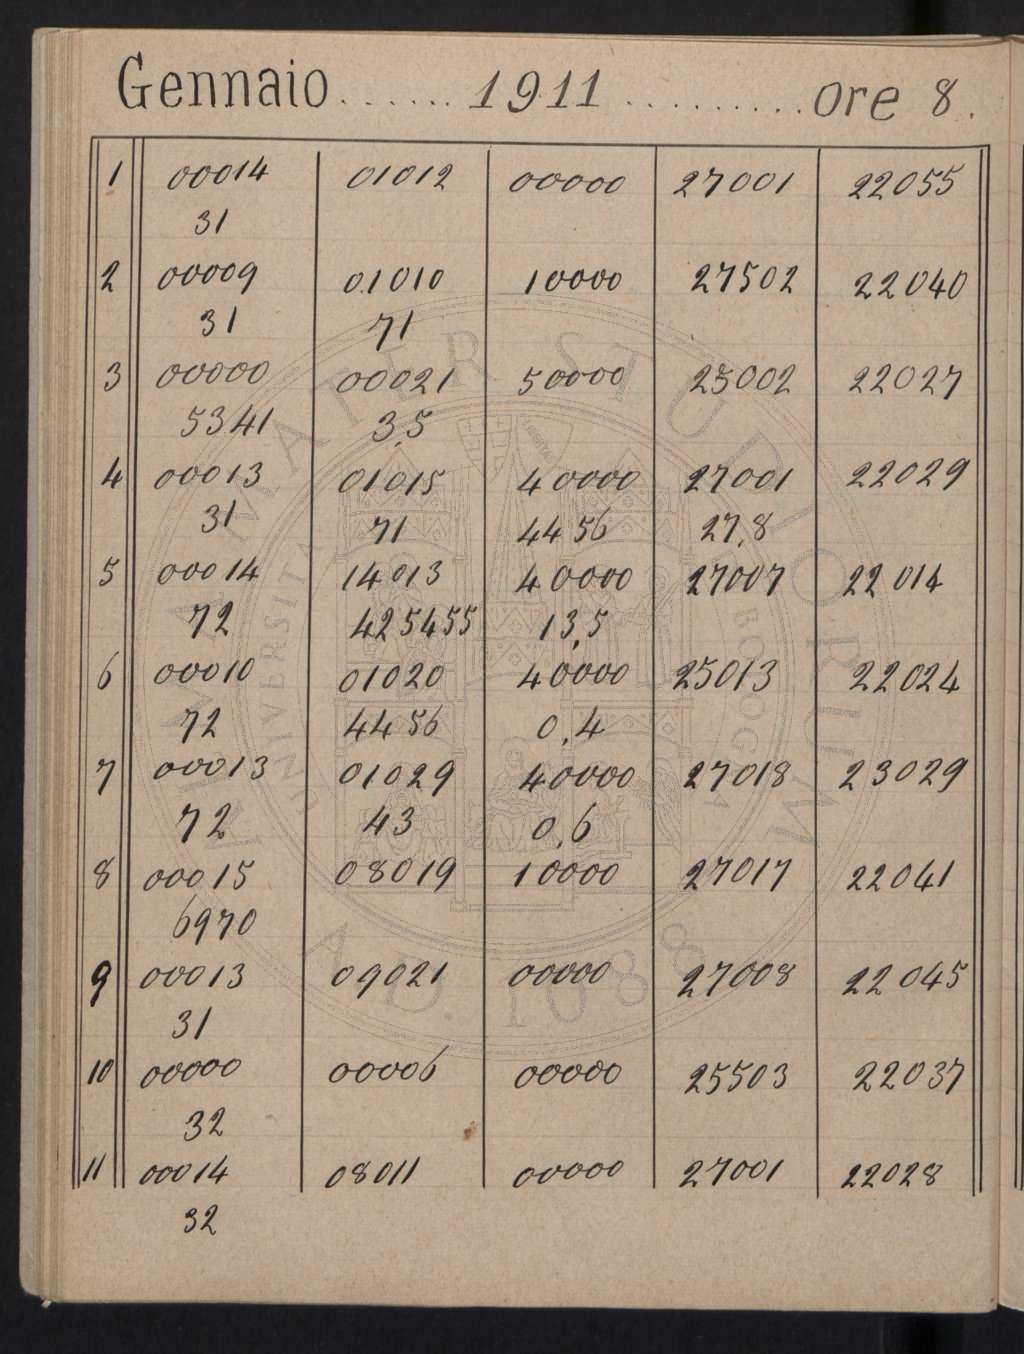 Gennaio ...... 1911 .......... ore 8.
1 00014 01012 00000 27001 22055
31
2 00009 01010 10000 27502 22040
31 71
3 00000 00021 50000 25002 22027
5341 3,5
4 00013 01015 40000 27001 22029
31 71 4456 27,8
5 00014 14013 40000 27007 22014
72 425455 13,5
6 00010 01020 40000 25013 22024
72 4456 0,4
7 00013 01029 40000 27018 23029
72 43 0,6
8 00015 08019 10000 27017 22041
6970
9 00013 09021 00000 27008 22045
31
10 00000 00006 00000 25503 22037
32
11 00014 08011 00000 27001 22028
32
ALMA MATER STUDIORUM
A.D. 1088